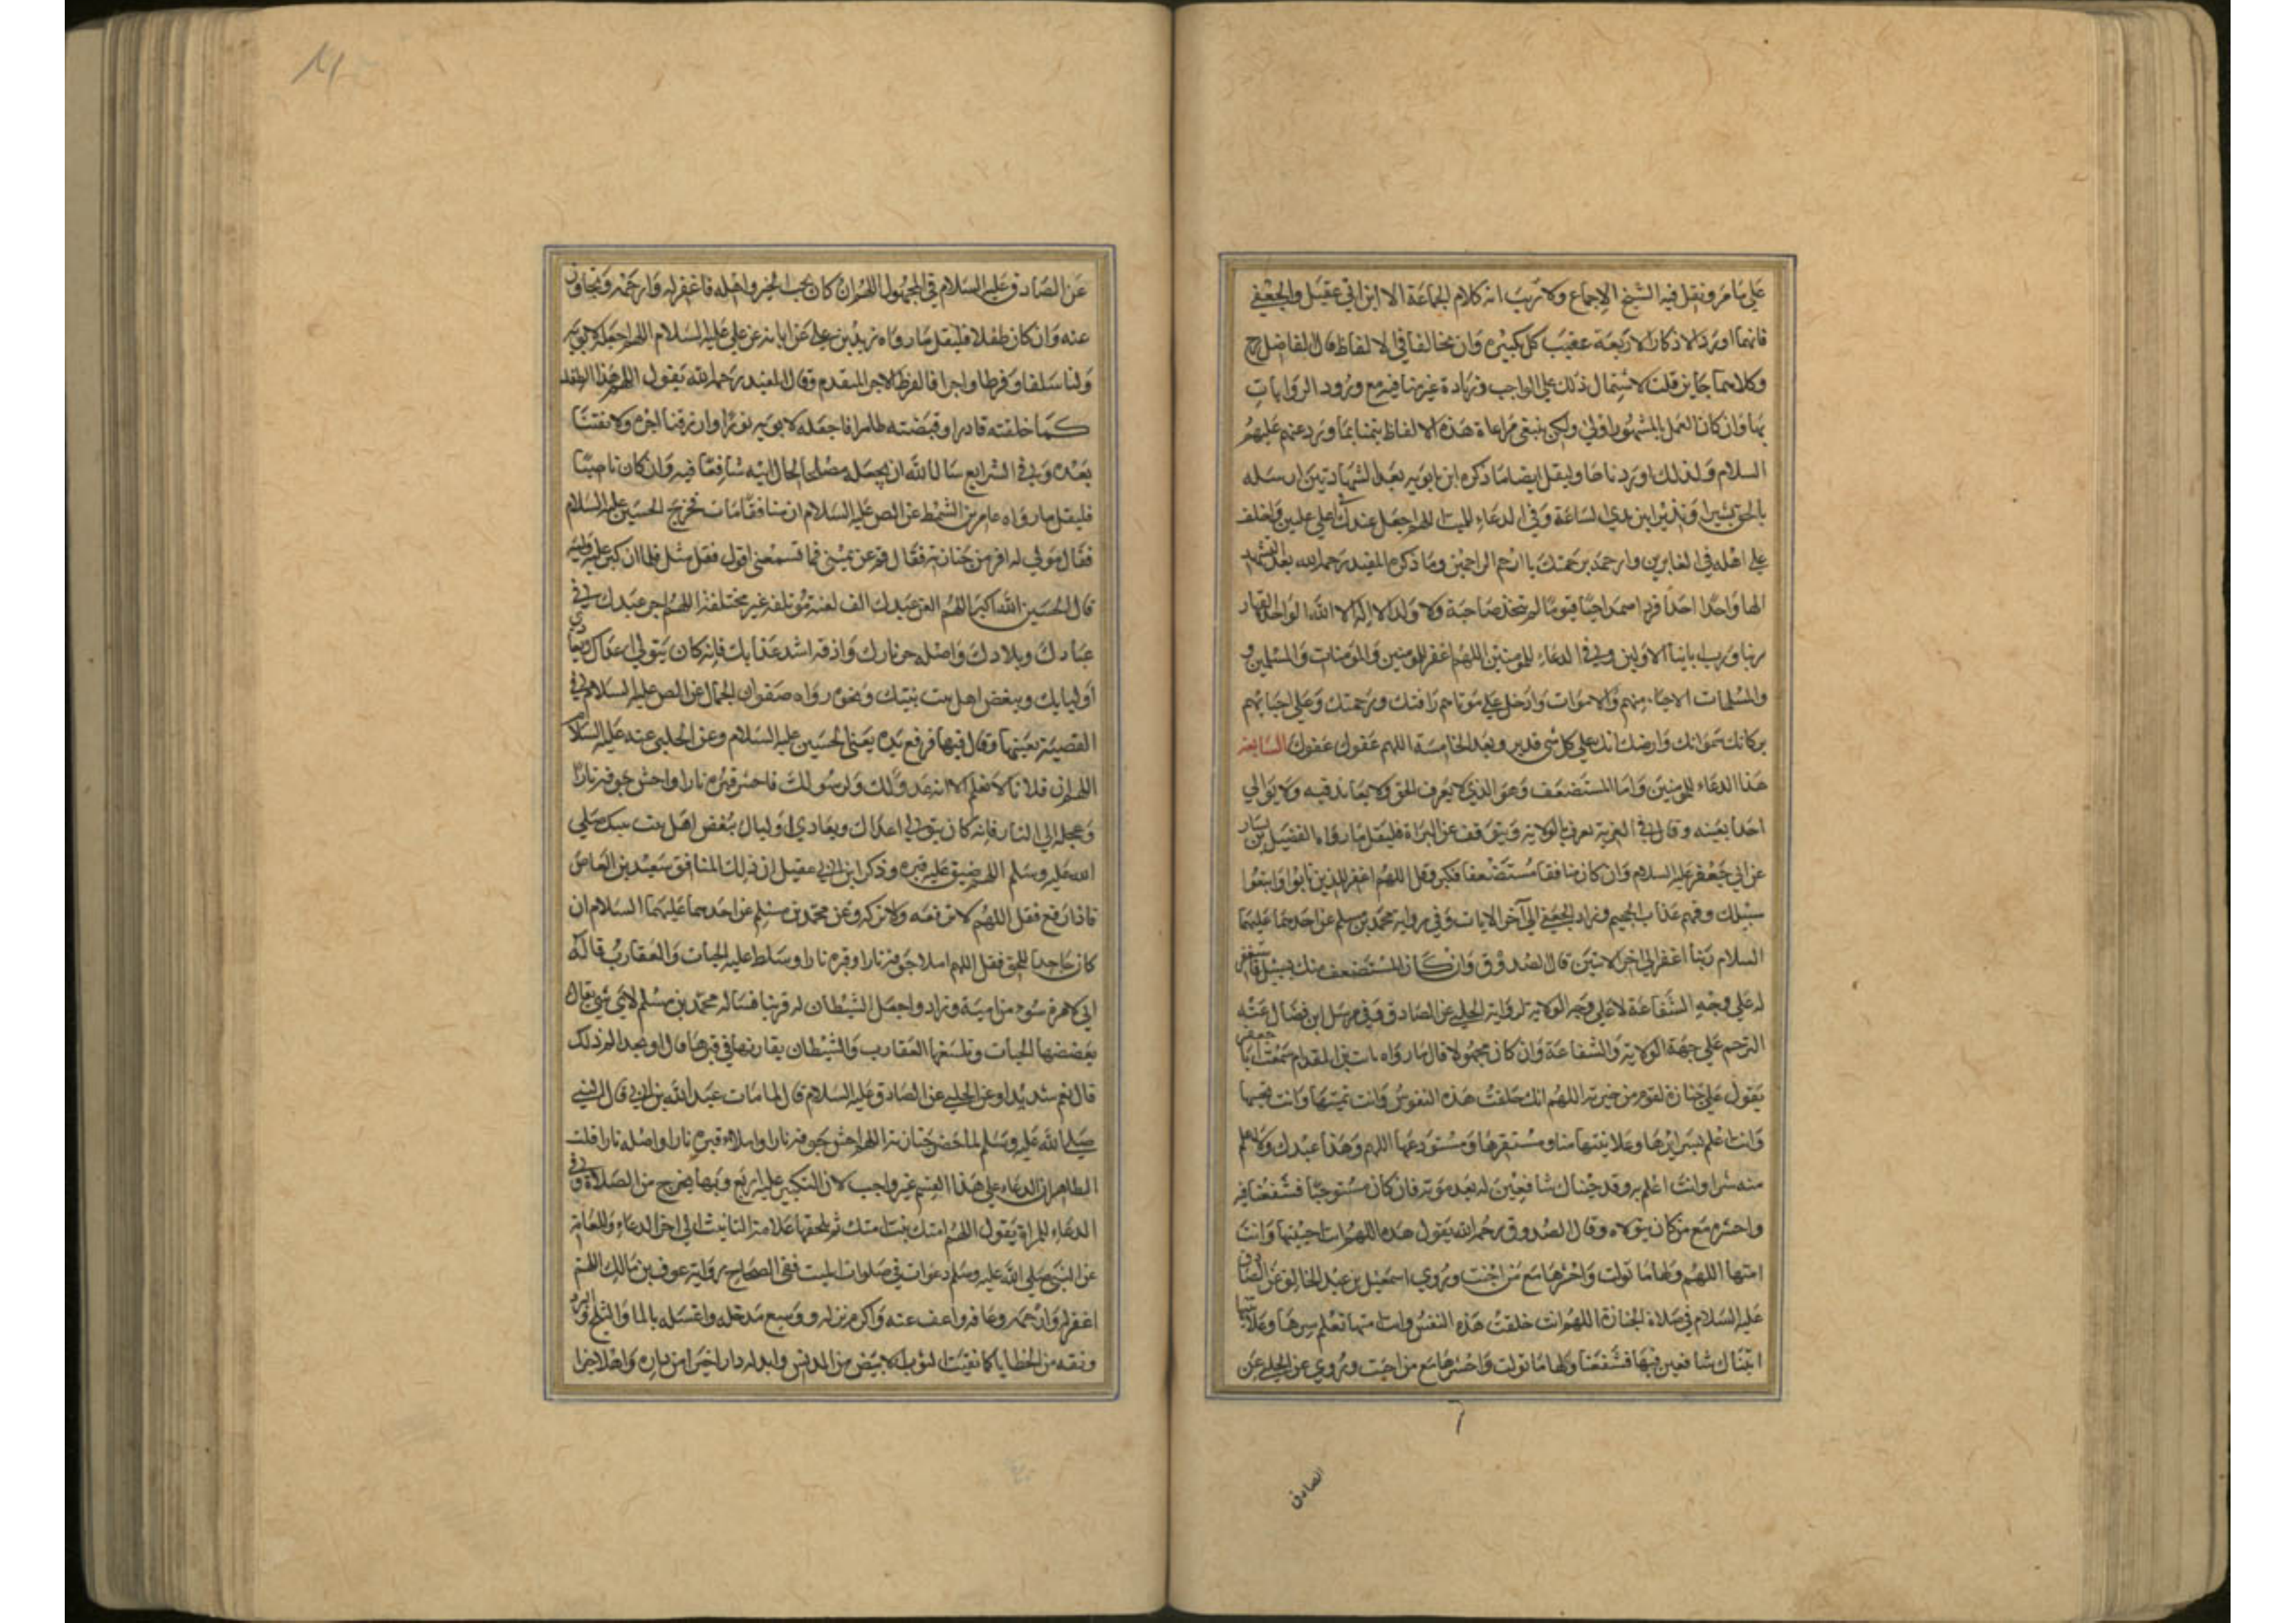 علي ما مر ونقل فيه الشيخ الاجماع ولا ريب انه كلام الجماعة الا ابن ابي عقيل والجعفي
فانهما اوردا الاذكار الاربعة عقيب كل تكبيرة وان تخالفا في الالفاظ قال الفاضل رح
وكلاهما جايز قلت لاشتمال ذلك علي الواجب وزيادة غير منافية مع ورود الروايات
بها وان كان العمل بالمشهور اولي ولكن ينبغي مراعاة هذه الالفاظ تيمنا بما ورد عنهم عليهم
السلام ولذلك اوردناها وليقل ايضا ما ذكره ابن بابويه بعد الشهادتين ارسله
بالحق بشيرا ونذيرا بين يدي الساعة وفي الدعاء للميت اللهم اجعله عندك في اعلي عليين واخلف
علي اهله في الغابرين وارحمه برحمتك يا ارحم الراحمين وما ذكره المفيد رحمه الله بعد التشهد
الها واحدا احدا فردا صمدا حيا قيوما لم يتخذ صاحبة ولا ولدا لا اله الا الله الواحد القهار
ربنا ورب ابائنا الاولين وفي الدعاء للمومنين اللهم اغفر للمومنين والمومنات والمسلمين و
والمسلمات الاحياء منهم والاموات وادخل علي موتاهم رافتك ورحمتك وعلي احيائهم
بركات سمواتك وارضك انك علي كل شي قدير وبعد الخامسة اللهم عفوك عفوك السابعة
هذا الدعاء للمومنين واما المستضعف وهو الذي لا يعرف الحق ولا يعاند فيه ولا يوالي
احدا بعينه وقال في العزية يعرف بالولاية ويتوقف عن البراة فليقل ما رواه الفضيل بن يسار
عن ابي جعفر عليه السلام وان كان منافقا مستضعفا فكبر وقل اللهم اغفر للذين تابوا واتبعوا
سبيلك وقهم عذاب الجحيم وزاد الجعفي الي آخر الايات وفي رواية محمد بن مسلم عن احدهما عليهما
السلام ربنا اغفر الي اخر الايتين قال الصدوق وان كان المستضعف منك بسبيل فاستغفر
له علي وجه الشفاعة لا علي وجه الولاية لرواية الحلبي عن الصادق وفي مرسل ابن فضال عنه
الترحم علي جهة الولاية والشفاعة وان كان مجهولا قال ما رواه ثابت بن ابي المقدام سمعت ابا جعفر
يقول علي جنازة لقوم من جيرته اللهم انك خلقت هذه النفوس وانت تميتها وانت تحييها
وانت اعلم بسرائرها وعلانيتها منا ومستقرها ومستودعها اللهم وهذا عبدك ولا اعلم
منه شرا وانت اعلم به وقد جئناك شافعين له بعد موته فان كان مستوجبا فشفعنا فيه
واحشره مع من كان يتولاه وقال الصدوق رحمه الله يقول هذه اللهم انت احييتها وانت
امتها اللهم ولها ما تولت واحشرها مع من احبت وروي اسمعيل بن عبد الخالق عن الصادق
عليه السلام في صلاة الجنازة اللهم انت خلقت هذه النفس وانت امتها تعلم سرها وعلانيتها
اتيناك شافعين فيها فشفعنا ولها ما تولت واحشرها مع من احبت وروي عن الحلبي عن
الصادق
عن الصادق عليه السلام في المجهول اللهم ان كان يحب الخير واهله فاغفر له وارحمه وتجاوز
عنه وان كان طفلا فليقل ما رواه زيد بن علي عن ابايه عن علي عليه السلام اللهم اجعله لابويه
ولنا سلفا وفرطا واجرا فالفرط الاجر المتقدم وقال المفيد رحمه الله يقول اللهم هذا الطفل
كما خلقته قادرا وقبضته طاهرا فاجعله لابويه نورا وارزقنا اجره ولا تفتنا
بعده وفي الشرايع سال الله ان يجعله مصلحا لحال ابيه شافعا فيه وان كان ناصبيا
فليقل ما رواه عامر بن السمط عن الص عليه السلام ان منافقا مات فخرج الحسين عليه السلام
فقال مولي له افر من جنازته فقال قم عن يميني فما تسمعني اقول فقل مثله فلما ان كبر عليه وليه
قال الحسين الله اكبر اللهم العن عبدك الف لعنة موتلفة غير مختلفة اللهم اجز عبدك في
عبادك وبلادك واصله حر نارك واذقه اشد عذابك فانه كان يتولي اعداك ويعادي
اوليايك ويبغض اهل بيت نبيك ونحوه رواه صفوان الجمال عن الص عليه السلام في
القصية بعينها وقال فيها فرفع يده يعني الحسين عليه السلام وعن الحلبي عنه عليه السلام
اللهم ان فلانا لا نعلم الا انه عدو لك ولرسولك فاحش قبره نارا واحش جوفه نارا
وعجله الي النار فانه كان يتولي اعداك ويعادي اولياك يبغض اهل بيت نبيك صلي
الله عليه وسلم اللهم ضيق عليه قبره وذكر ابن ابي عقيل ان ذلك المنافق سعيد بن العاص
فاذا رفع فقل اللهم لا ترفعه ولا تزكه وعن محمد بن مسلم عن احدهما عليهما السلام ان
كان جاحدا للحق فقل اللهم املا جوفه نارا وقبره نارا وسلط عليه الحيات والعقارب قاله
ابي لامرة سوء من امية وزاد واجعل الشيطان له قرينا فساله محمد بن مسلم لاي شي يقال
يعضضها الحيات وتلسعها العقارب والشيطان يقارنها في قبرها قال او تجد الم ذلك
قال نعم شديدا وعن الحلبي عن الصادق عليه السلام قال لما مات عبد الله بن ابي قال النبي
صلي الله عليه وسلم لما حضر جنازته اللهم احش جوفه نارا واملاء قبره نارا واصله نارا قلت
الظاهر ان الدعاء علي هذا القسم غير واجب لان التكبير عليه اربع وبها يخرج من الصلاة وفي
الدعاء للمراة يقول اللهم امتك بنت امتك ثم يلحقها علامة التانيث الي اخر الدعاء وللعامة
عن النبي صلي الله عليه وسلم دعوات في صلوات الميت ففي الصحاح برواية عوف بن مالك اللهم
اغفر له وارحمه وعافه واعف عنه واكرم نزله ووسع مدخله واغسله بالما والثلج والبرد
ونقه من الخطايا كما نقيت الثوب الابيض من الدنس وابدله دارا خيرا من داره واهلا خيرا